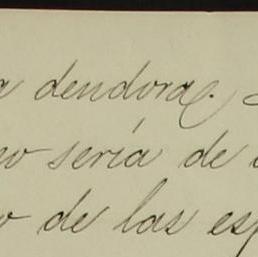 a dendora.
no sería de
o de las esp